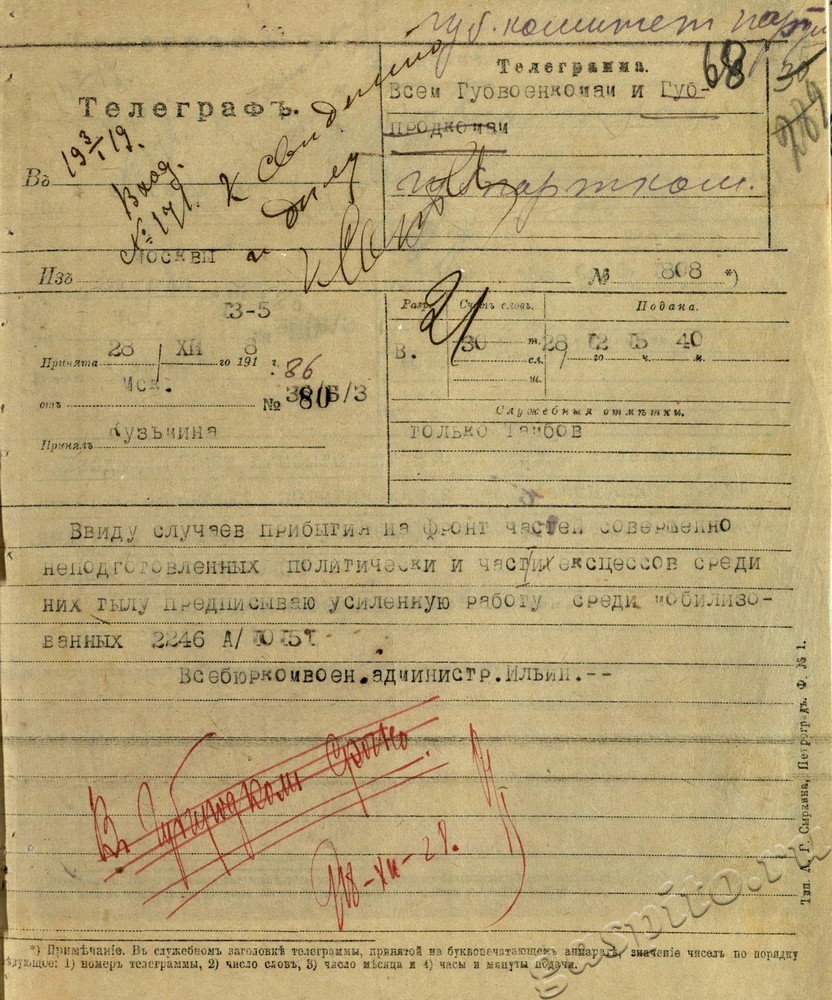 Губ. комитет
68
30
289
Телеграфъ.
Телеграмма.
Всем Губвоенкомам и Губ-
продкомам
губпартком.
Въ
19 3/I 19.
Вход.
№ 171.
К сведению
и делу
Москвы
Изъ
№ 808 *)
13-5
Принята 28/XII го 191 8 г.
86
Мск.
отъ № 80
Принялъ Кузьмина
Разр. Счетъ словъ. Подана.
В. 30 т. сл. ш. 28/го 12 ч. 15 м. 40
21
Служебныя отмѣтки.
только Тамбов
Ввиду случаев прибытия на фронт частей совершенно
неподготовленных политически и частых ексцессов среди
них тылу предписываю усиленную работу среди мобилизо-
ванных 2246 А/ 10151
Всебюрковоен.администр.Ильин.--
В Губпродком срочно.
28-XII-
Тип. А. Г. Сыркина, Петроградъ. Ф. № 1.
*) Примѣчаніе. Въ служебномъ заголовкѣ телеграммы, принятой на буквопечатающемъ аппаратѣ, значеніе чиселъ по порядку
слѣдующее: 1) номеръ телеграммы, 2) число словъ, 3) число мѣсяца и 4) часы и минуты подачи.
gaspito.ru